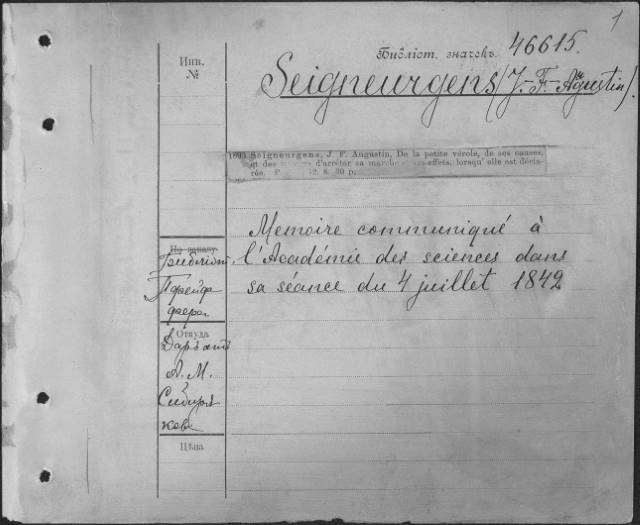 1
Библіот. значекъ 46615.
Инв.
№
Seigneurgens (J.-F.-Augustin).
Seigneurgens, J. F. Augustin, De la petite vérole, de ses causes,
et des d'arrêter sa marche effets, lorsqu' elle est décla-
rée. P. 8. 30 p.
Memoire communiqué à
l'Académie des sciences dans
sa séance du 4 juillet 1842
По заказу
Откуда
Даръ
А. М.
Сибиря
кова
Цѣна